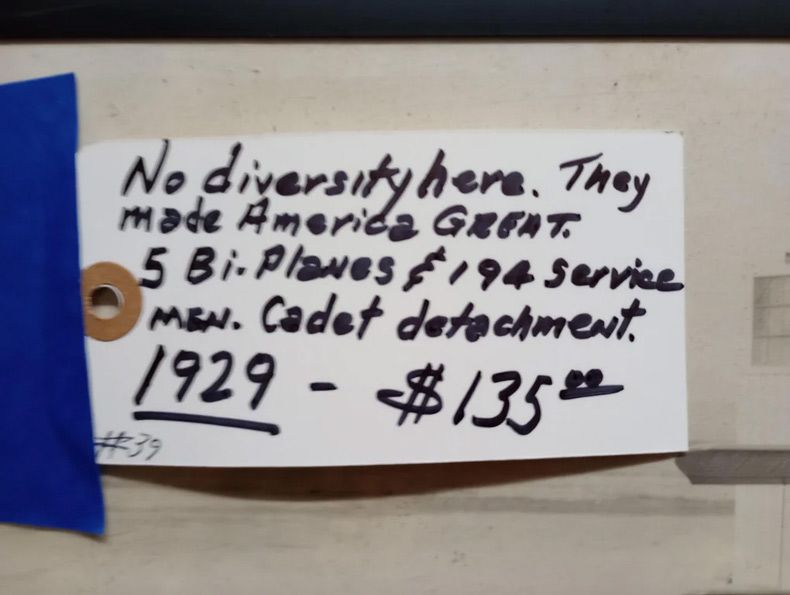 No diversity here. They
made America GREAT.
5 Bi-Planes & 194 service
MEN. Cadet detachment.
1929 - $135.00
#39